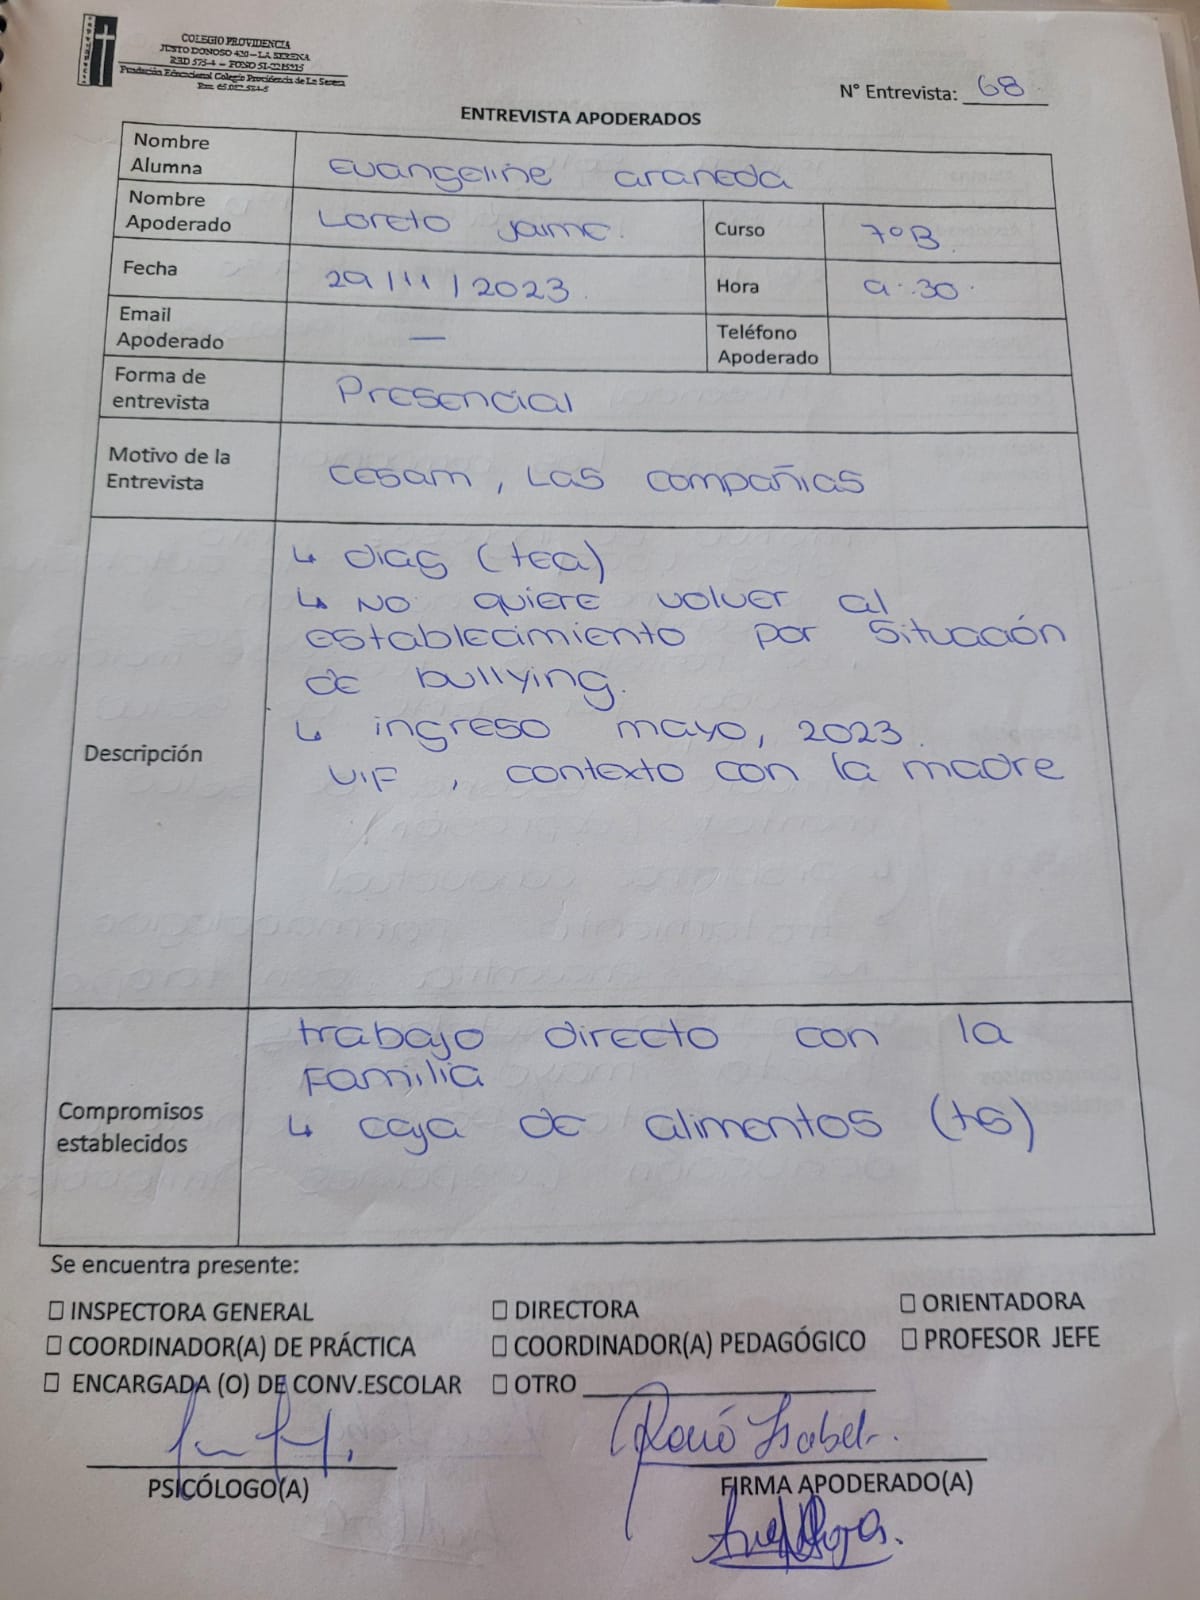 COLEGIO PROVIDENCIA
JUSTO DONOSO 420 – LA SERENA
RBD 575-4 – FONO 51-2215215
Fundación Educacional Colegio Providencia de La Serena
N° Entrevista: 68
ENTREVISTA APODERADOS
Nombre Alumna
Evangeline araneda
Nombre Apoderado
Loreto Jaime.
Curso
7°B.
Fecha
29/11/2023.
Hora
9:30.
Email Apoderado
—
Teléfono Apoderado
Forma de entrevista
Presencial
Motivo de la Entrevista
cesam, Las compañias
Descripción
↳ diag (tea)
↳ NO quiere volver al
establecimiento por situación
de bullying.
↳ ingreso mayo, 2023.
VIF, contexto con la madre
Compromisos establecidos
trabajo directo con la
Familia
↳ caja de alimentos (ts)
Se encuentra presente:
☐ INSPECTORA GENERAL
☐ DIRECTORA
☐ ORIENTADORA
☐ COORDINADOR(A) DE PRÁCTICA
☐ COORDINADOR(A) PEDAGÓGICO
☐ PROFESOR JEFE
☐ ENCARGADA (O) DE CONV.ESCOLAR
☐ OTRO
Isabel
PSICÓLOGO(A)
FIRMA APODERADO(A)